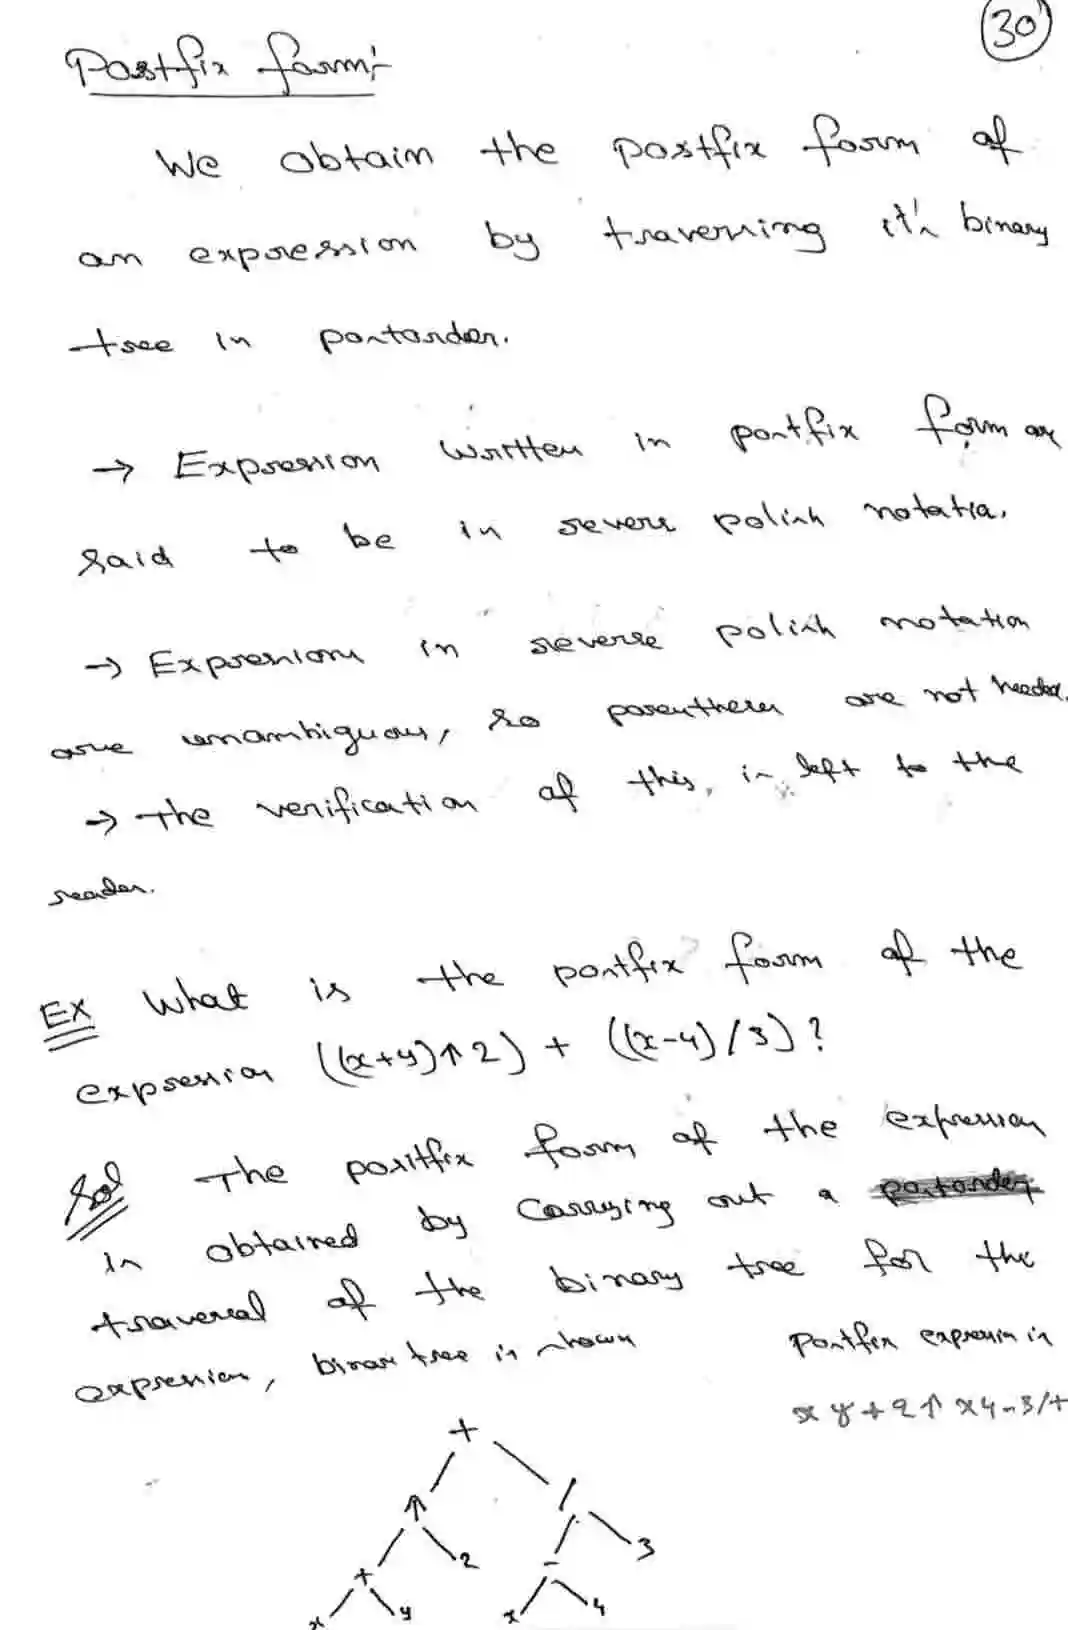 30
Postfix form:-
We obtain the postfix form of
an expression by traversing it's binary
tree in postorder.
→ Expression written in postfix form are
said to be in severe polish notatia.
→ Expressions in reverse polish notation
are unambiguous, so parentheses are not needed.
→ The verification of this, is left to the
reader.
EX What is the postfix form of the
expression ((x+y)↑2) + ((x-4)/3)?
Sol The positfix form of the expression
is obtained by carrying out a postorder
traversal of the binary tree for the
expression, binar tree is shown
Postfix expressin is
x y + 2 ↑ x 4 - 3 / +
+
↑ /
+ 2 - 3
x y x 4